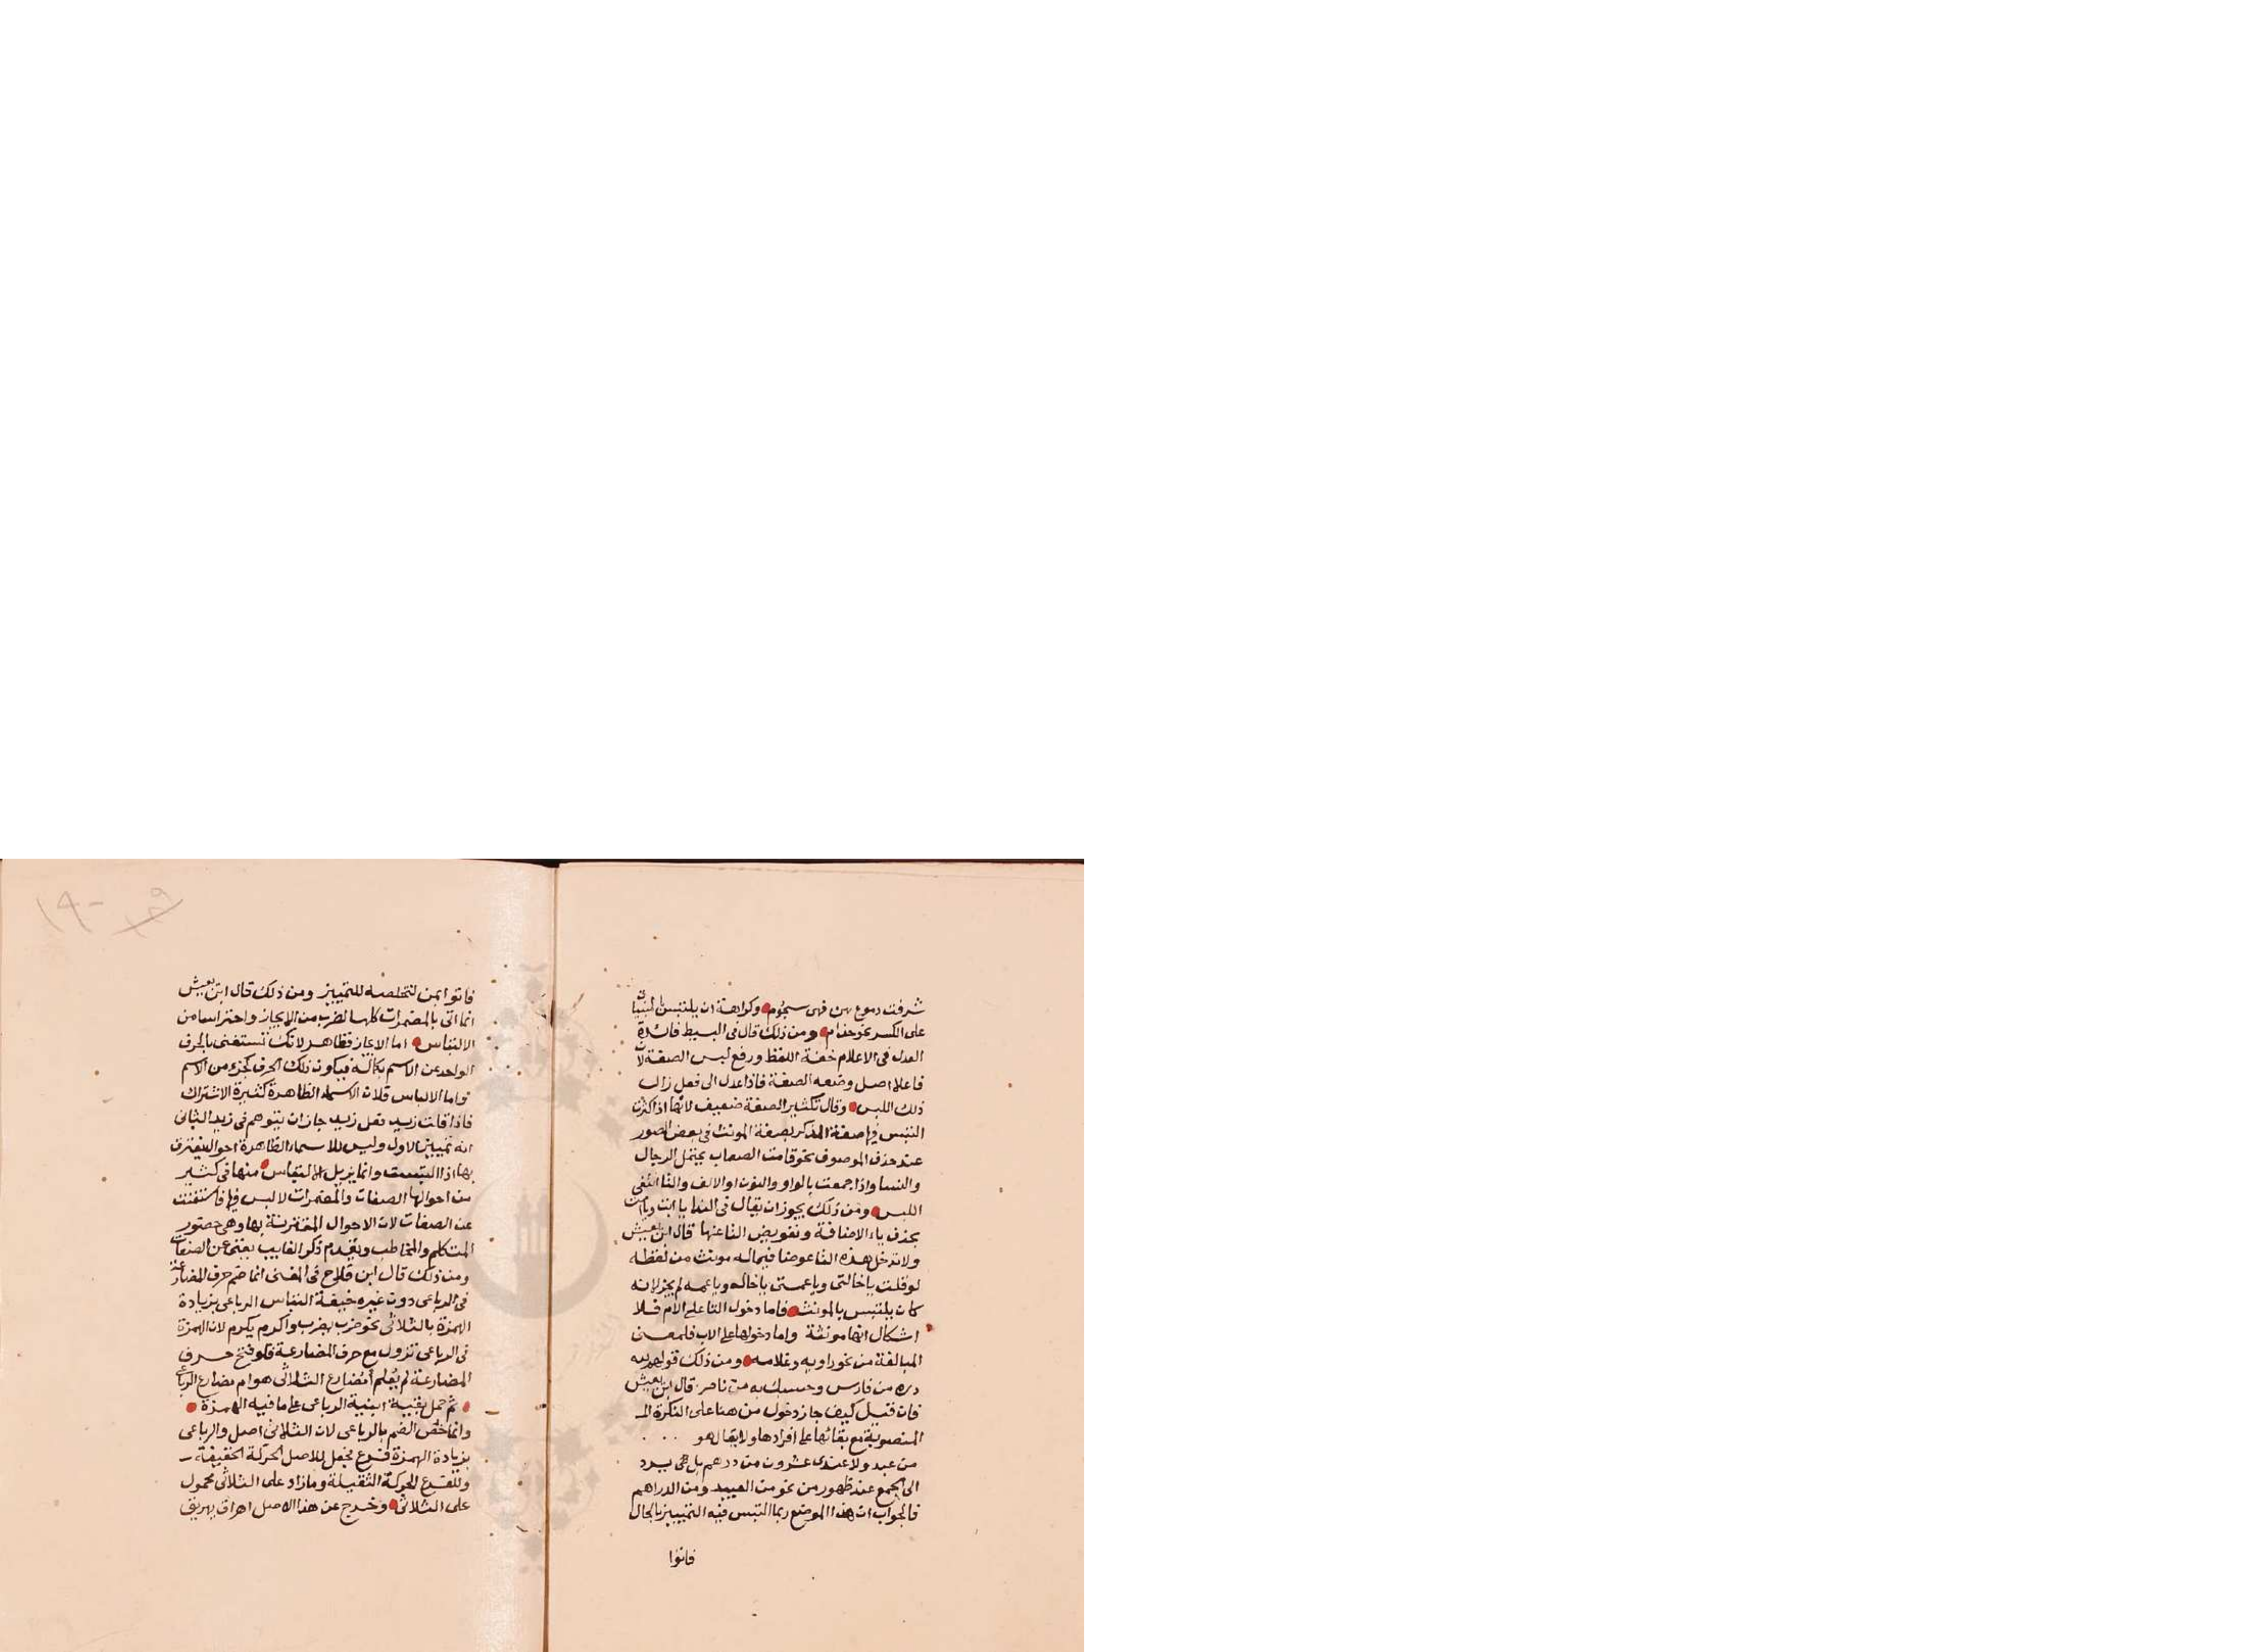 شرقت دموع بهن فهي سجوم وكراهة ان يلتبس بالمبنيات
على الكسر نحو حذام ومن ذلك قال في البسيط فائدة
العدل في الاعلام خفة اللفظ ورفع لبس الصفة لان
فاعلا اصل وضعه الصفة فاذا عدل الى فعل زال
ذلك اللبس وقال تكثير الصفة ضعيف لانها اذا كثرت
التبس فيها صفة المذكر بصفة المونث في بعض الصور
عند حذف الموصوف نحو قامت الصعاب يحتمل الرجال
والنسا واذا جمعت بالواو والنون او الالف والتا انتفى
اللبس ومن ذلك يجوز ان يقال في الندا يا ابت ويا امت
بحذف ياء الاضافة وتعويض التا عنها قال ابن يعيش
ولا تدخل هذه التا عوضا فيما له مونث من لفظه
لو قلت يا خالتي ويا عمتي يا خاله ويا عمه لم يجز لانه
كان يلتبس بالمونث فاما دخول التا على الام فلا
اشكال انها مونثة واما دخولها على الاب فلمعنى
المبالغة من نحو راويه وعلامه ومن ذلك قولهم لله
دره من فارس وحسبك به من ناصر قال ابن يعيش
فان قيل كيف جاز دخول من هنا على النكرة الـ
المنصوبة مع بقائها على افرادها ولا يقال هو
من عبد ولا عندي عشرون من درهم بل هي يرد
الى الجمع عند ظهور من نحو من العبيد ومن الدراهم
فالجواب ان هذا الموضع ربما التبس فيه التمييز بالحال
فاتوا
فاتوا بمن لتخلصه للتمييز ومن ذلك قال ابن يعيش
انما اتى بالمضمرات كلها لضرب من الايجاز واحتراسا من
الالتباس اما الايجاز فظاهر لانك تستغني بالحرف
الواحد عن الاسم بكاله فيكون ذلك الحرف كجزء من الاسم
واما الالباس فلان الاسماء الظاهرة كثيرة الاشتراك
فاذا قلت زيد فعل زيد جاز ان يتوهم في زيد الثاني
انه تمييز الاول وليس للاسماء الظاهرة احوال تفترق
بها اذا التبست وانما يزيل الالتباس منها في كثير
من احوالها الصفات والمضمرات لا لبس فيها فاستغنت
عن الصفات لان الاحوال المقترنة بها وهي حضور
المتكلم والمخاطب وتقدم ذكر الغايب يغني عن الصفات
ومن ذلك قال ابن فلاح في المغني انما ضم حرف المضارعة
في الرباعي دون غيره خيفة التباس الرباعي بزيادة
الهمزة بالثلاثي نحو ضرب يضرب واكرم يكرم لان الهمزة
في الرباعي تزول مع حرف المضارعة فلو فتح حرف
المضارعة لم يعلم أمضارع الثلاثي هو ام مضارع الرباعي
ثم حمل بقية ابنية الرباعي على ما فيه الهمزة
وانما خص الضم بالرباعي لان الثلاثي اصل والرباعي
بزيادة الهمزة فرع فجعل للاصل الحركة الخفيفة
وللفرع الحركة الثقيلة وما زاد على الثلاثي محمول
على الثلاثي وخرج عن هذا الاصل اهراق يهريق